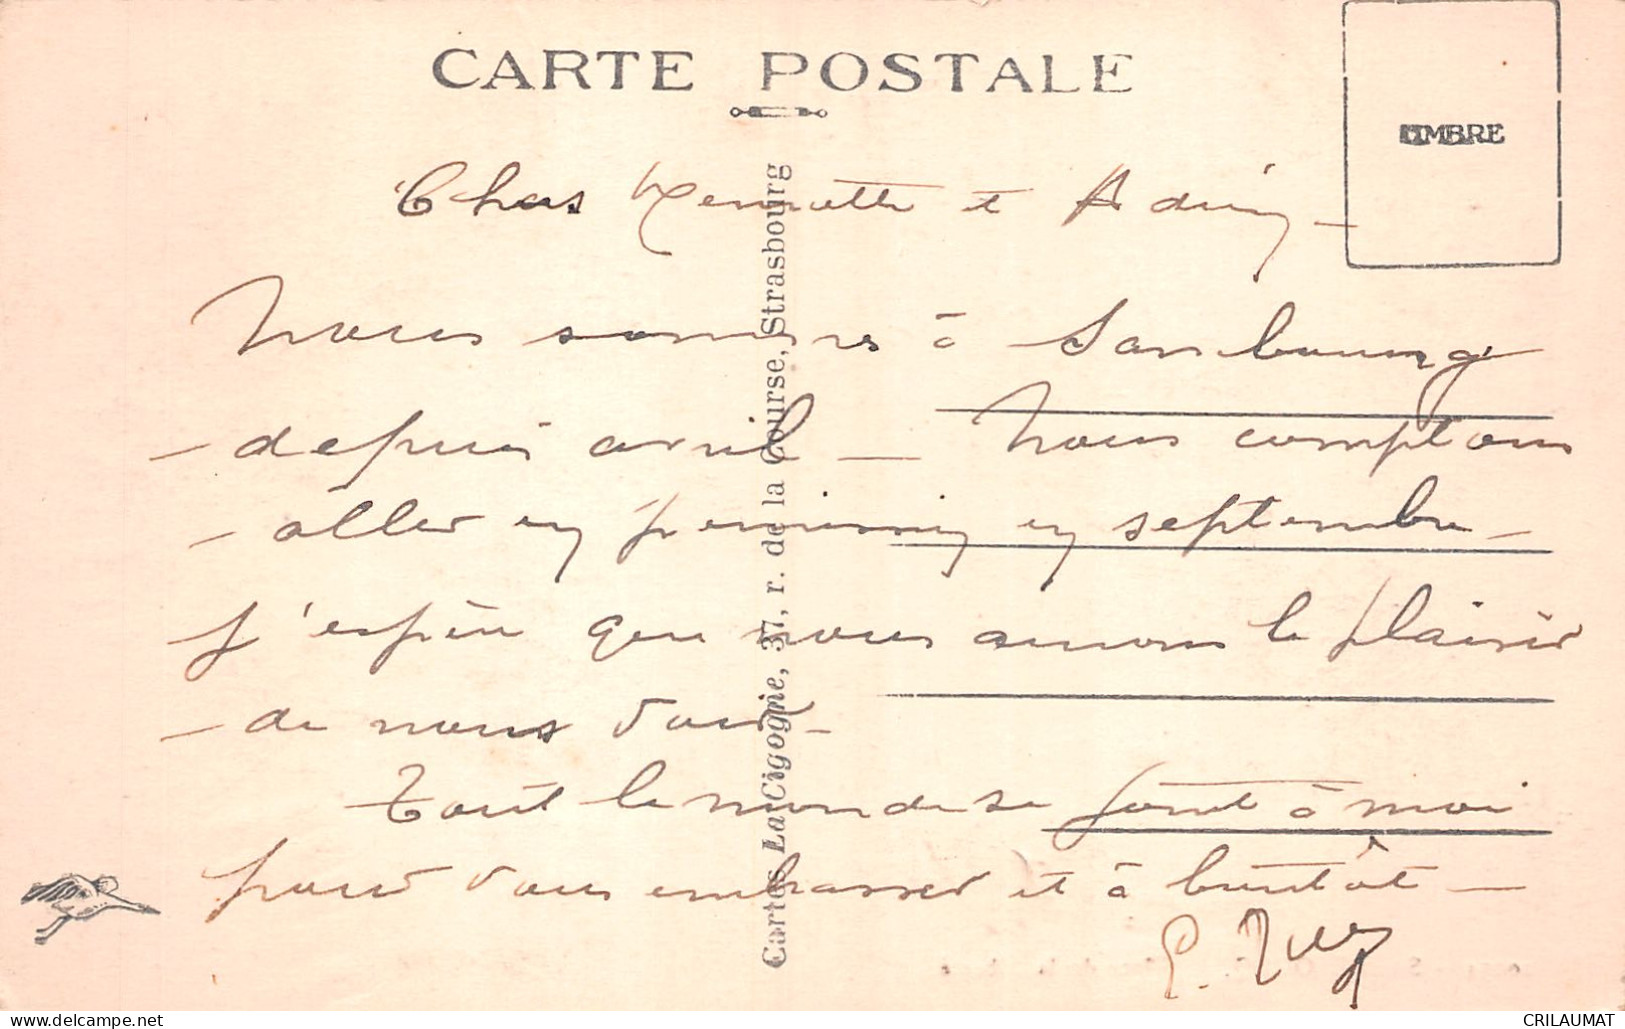 CARTE POSTALE
TIMBRE
Chers Henriette et
Nous sommes à Sarrebourg
- depuis avril - Nous comptons
- aller en permission en septembre -
J'espère que nous aurons le plaisir
- de nous voir -
Tout le monde se joint à moi
pour vous embrasser et à bientôt -
Cartes La Cigogne, 37, r. de la Course, Strasbourg
CRILAUMAT